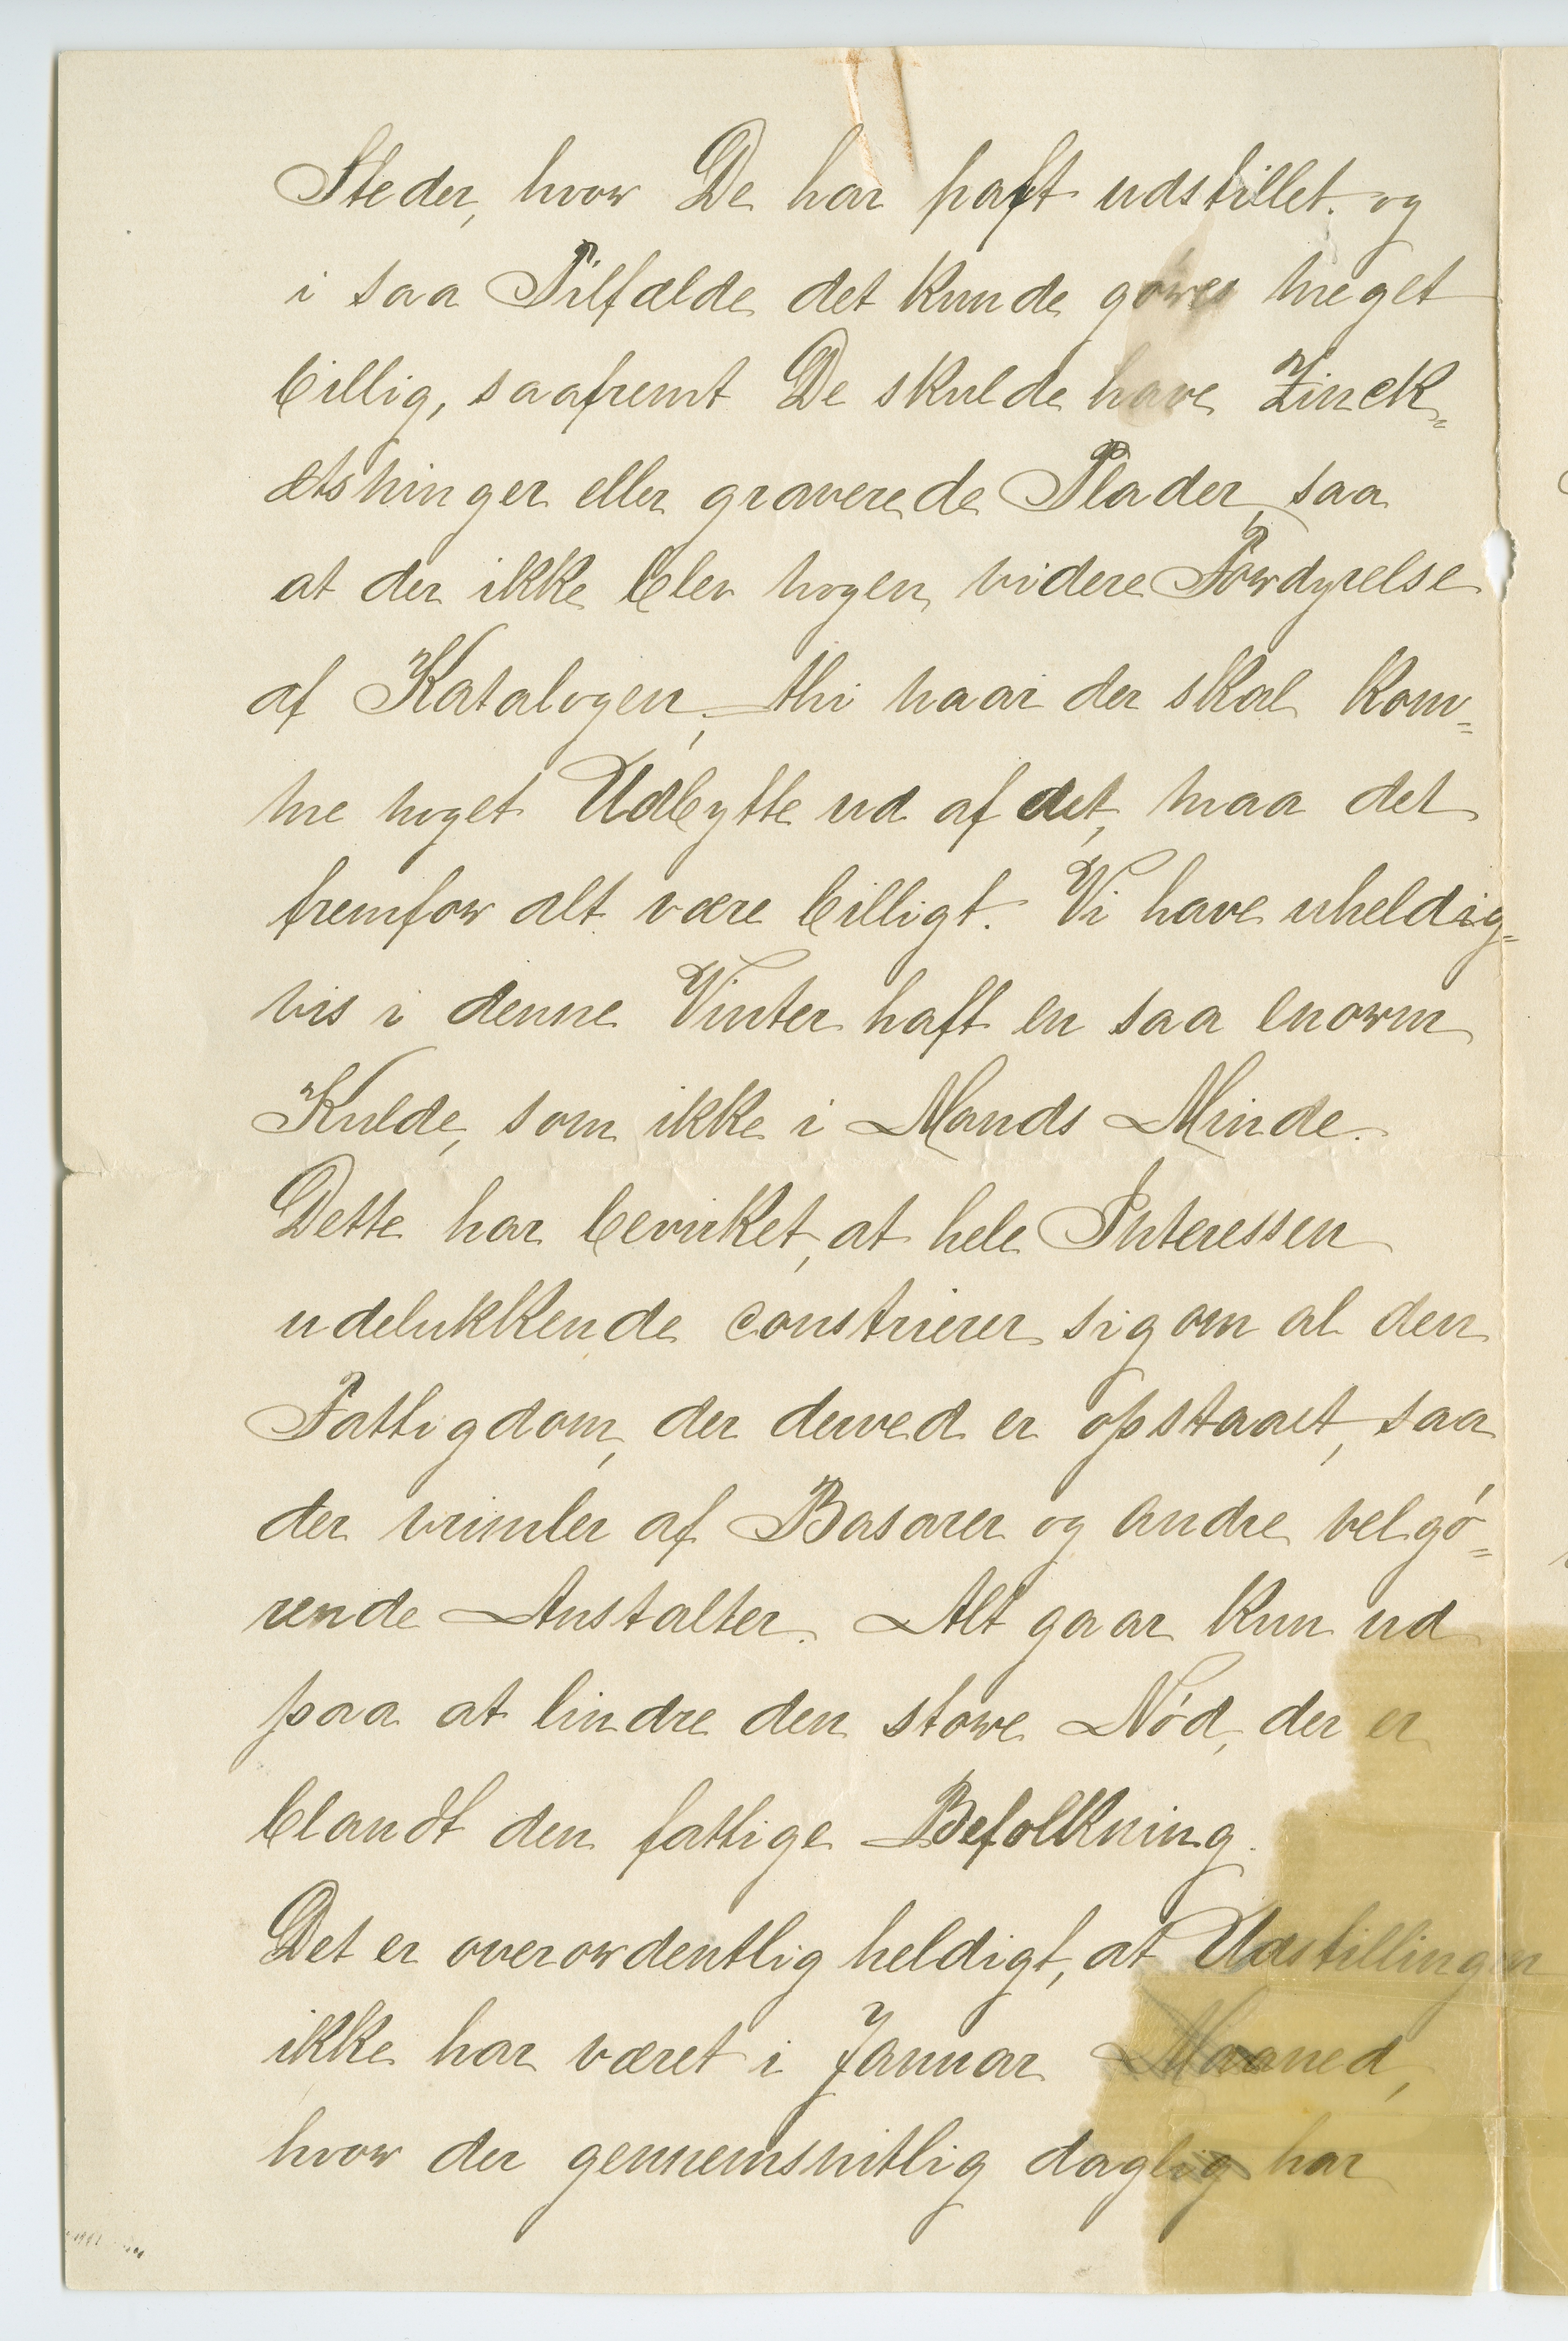 Steder, hvor De har haft udstillet. og
i saa Tilfælde det kunde gøres meget
billig, saafremt De skulde have Zinck=
ætsninger eller graverede Plader, saa
at der ikke blev nogen videre Fordyrelse
af Katalogen, thi naar der skal kom=
me noget Udbytte ud af det, maa det
fremfor alt være billigt. Vi have uheldig=
vis i denne Vinter haft en saa enorm
Kulde, som ikke i Mands Minde.
Dette har bevirket, at hele Interessen
udelukkende constrierer sig om al den
Fattigdom, der derved er opstaaet, saa
der vrimler af Basarer og andre velgó=
rende Anstalter. Alt gaar kun ud
paa at lindre den store Nód, der er
blandt den fattige Befolkning.
Det er overordentlig heldigt, at Udstillingen
ikke har været i Januar Maaned,
hvor der gennemsnitlig daglig har